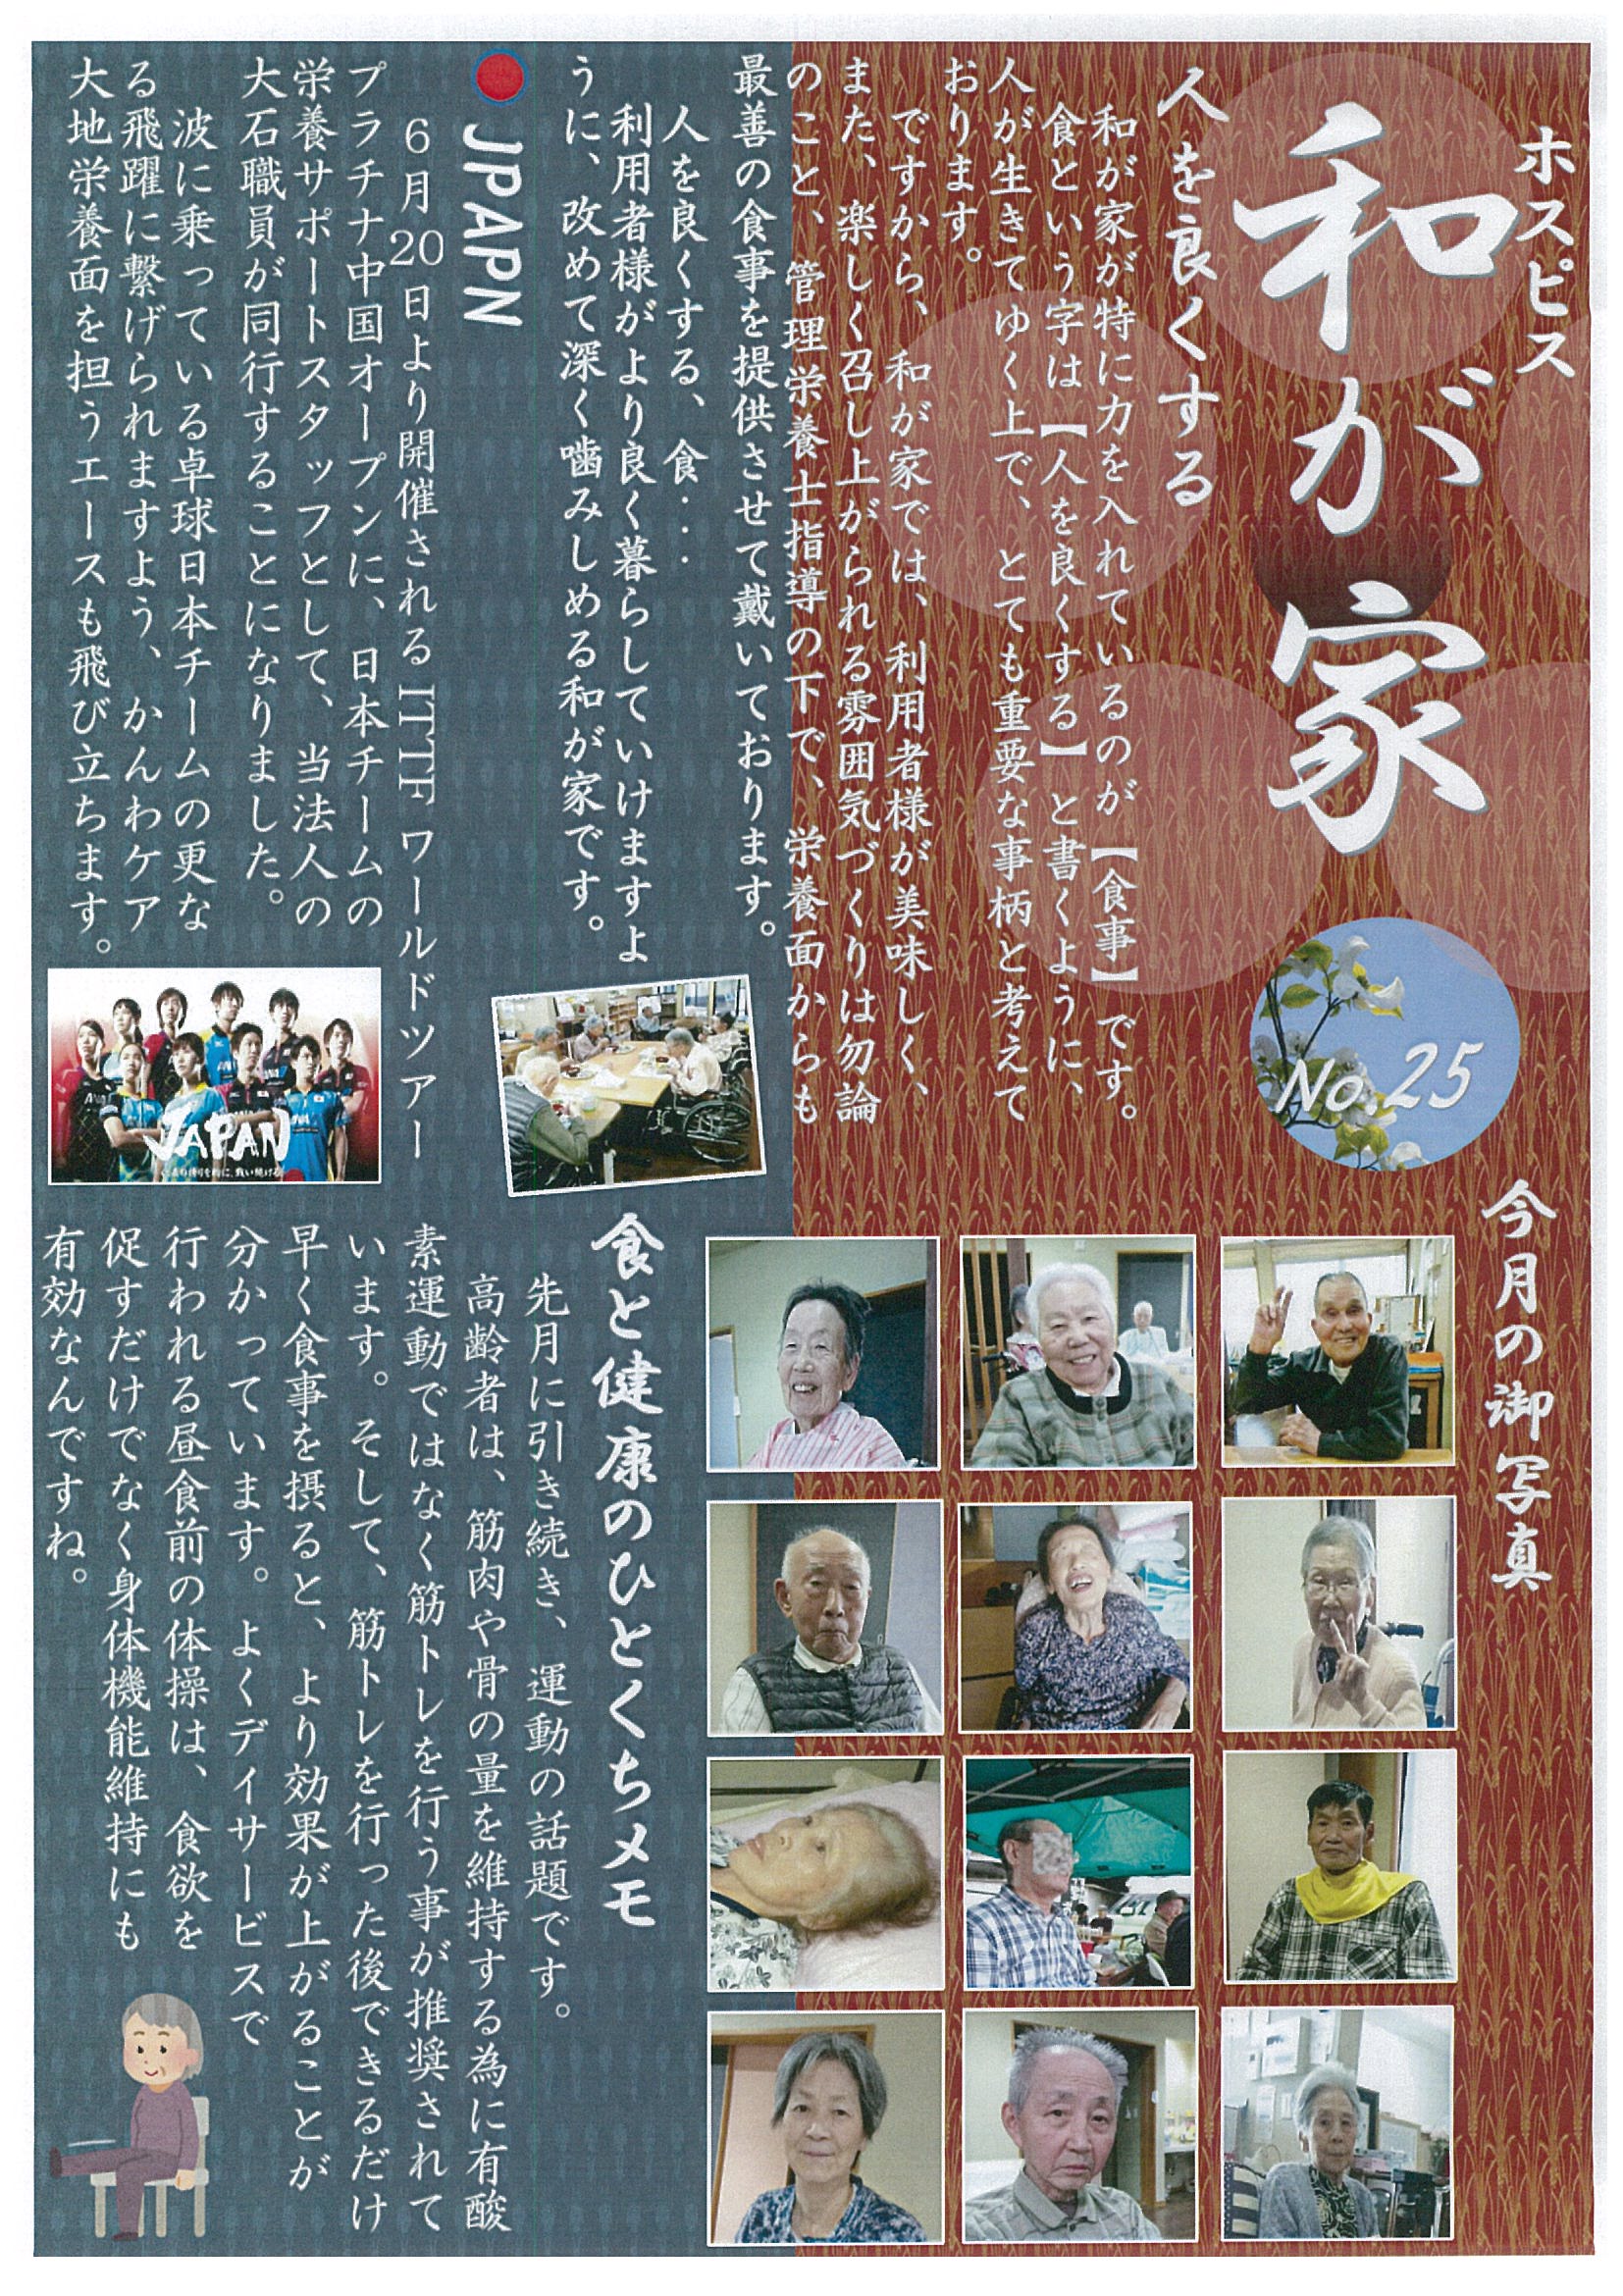 ホスピス
和が家
No.25
人を良くする
和が家が特に力を入れているのが【食事】です。
食という字は【人を良くする】と書くように、
人が生きてゆく上で、とても重要な事柄と考えて
おります。
ですから、和が家では、利用者様が美味しく、
また、楽しく召し上がられる雰囲気づくりは勿論
のこと、管理栄養士指導の下で、栄養面からも
最善の食事を提供させて戴いております。
人を良くする、食・・・
利用者様がより良く暮らしていけますよ
うに、改めて深く噛みしめる和が家です。
JPAPN
6月20日より開催されるITTFワールドツアー
プラチナ中国オープンに、日本チームの
栄養サポートスタッフとして、当法人の
大石職員が同行することになりました。
波に乗っている卓球日本チームの更な
る飛躍に繋げられますよう、かんわケア
大地栄養面を担うエースも飛び立ちます。
JAPAN
今月の御写真
食と健康のひとくちメモ
先月に引き続き、運動の話題です。
高齢者は、筋肉や骨の量を維持する為に有酸
素運動ではなく筋トレを行う事が推奨されて
います。そして、筋トレを行った後できるだけ
早く食事を摂ると、より効果が上がることが
分かっています。よくデイサービスで
行われる昼食前の体操は、食欲を
促すだけでなく身体機能維持にも
有効なんですね。